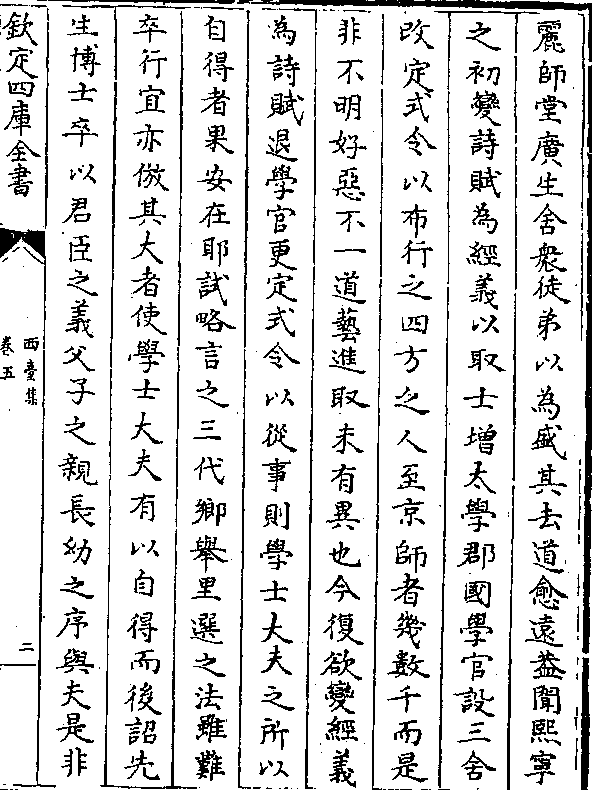 麗師堂廣生舍衆徒弟以為盛其去道愈遠蓋聞熙寧
之初變詩賦為經義以取士增太學郡國學官設三舍
改定式令以布行之四方之人至京師者幾數千而是
非不明好惡不一道藝進取未有異也今復欲變經義
為詩賦退學官更定式令以從事則學士大夫之所以
自得者果安在耶試略言之三代鄉舉里選之法雖難
卒行宜亦倣其大者使學士大夫有以自得而後詔先
生博士卒以君臣之義父子之親長幼之序與夫是非
欽定四庫全書
西臺集
卷五
二